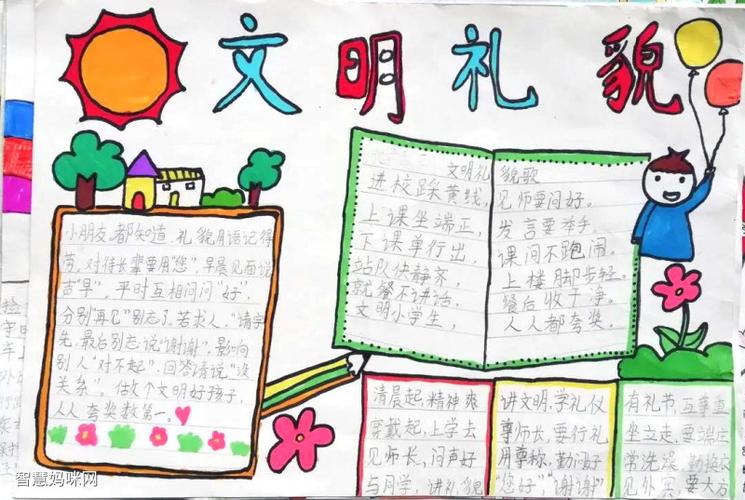 文明礼貌
小朋友,都知道,礼貌用语记得
劳,对待长辈要用"您",早晨见面说
声"早",平时互相问问"好",
分别"再见"别忘了,若求人,"请字
先,最后别忘说"谢谢",影响
别人"对不起",回答请说"没
关系",做个文明好孩子,
人人夸奖数第一。
文明礼貌歌
进校踩黄线,
上课坐端正,
下课单行出,
站队快静齐,
就餐不讲话,
文明小学生,
见师要问好。
发言要举手,
课间不跑闹。
上楼脚步轻。
餐后收干净。
人人都夸奖。
清晨起,精神爽
穿戴起,上学去
见师长,问声好
与同学,讲礼貌
讲文明,学礼仪
尊师长,要行礼
用尊称,勤问好
"您好""谢谢"
有礼节,互尊重
坐立走,要端庄
常洗澡,勤换衣
见外宾,要大方
智慧妈咪网